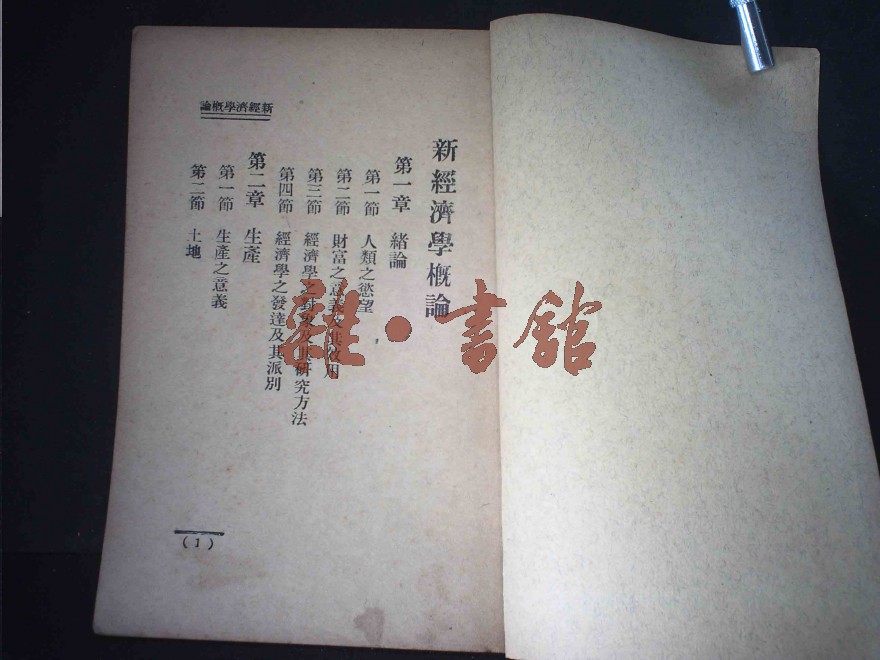 新經濟學槪論
新經濟學槪論
第一章 緒論
第一節 人類之慾望
第二節 財富之意義及其效用
第三節 經濟學之對象及其研究方法
第四節 經濟學之發達及其派別
第二章 生產
第一節 生產之意義
第二節 土地
(1)
雜·書館